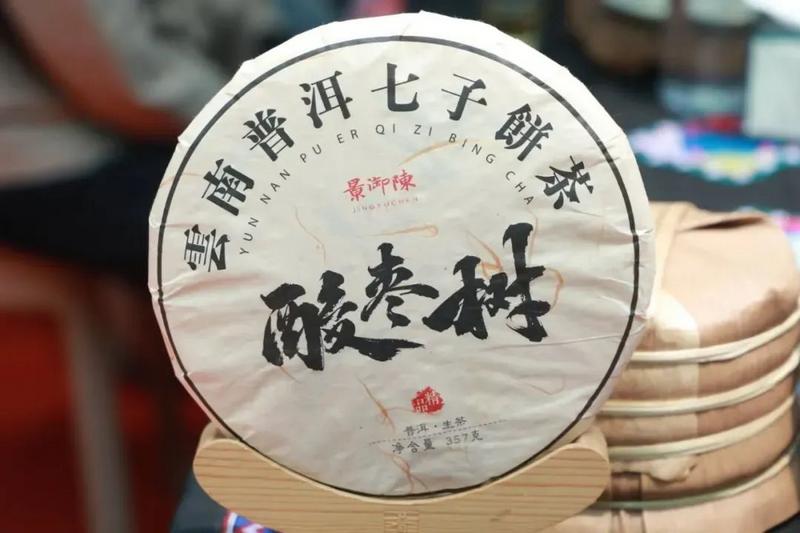 雲南普洱七子餅茶
YUN NAN PU ER QI ZI BING CHA
景御陳
JINGYUCHEN
酸枣树
精品
普洱·生茶
净含量 357克